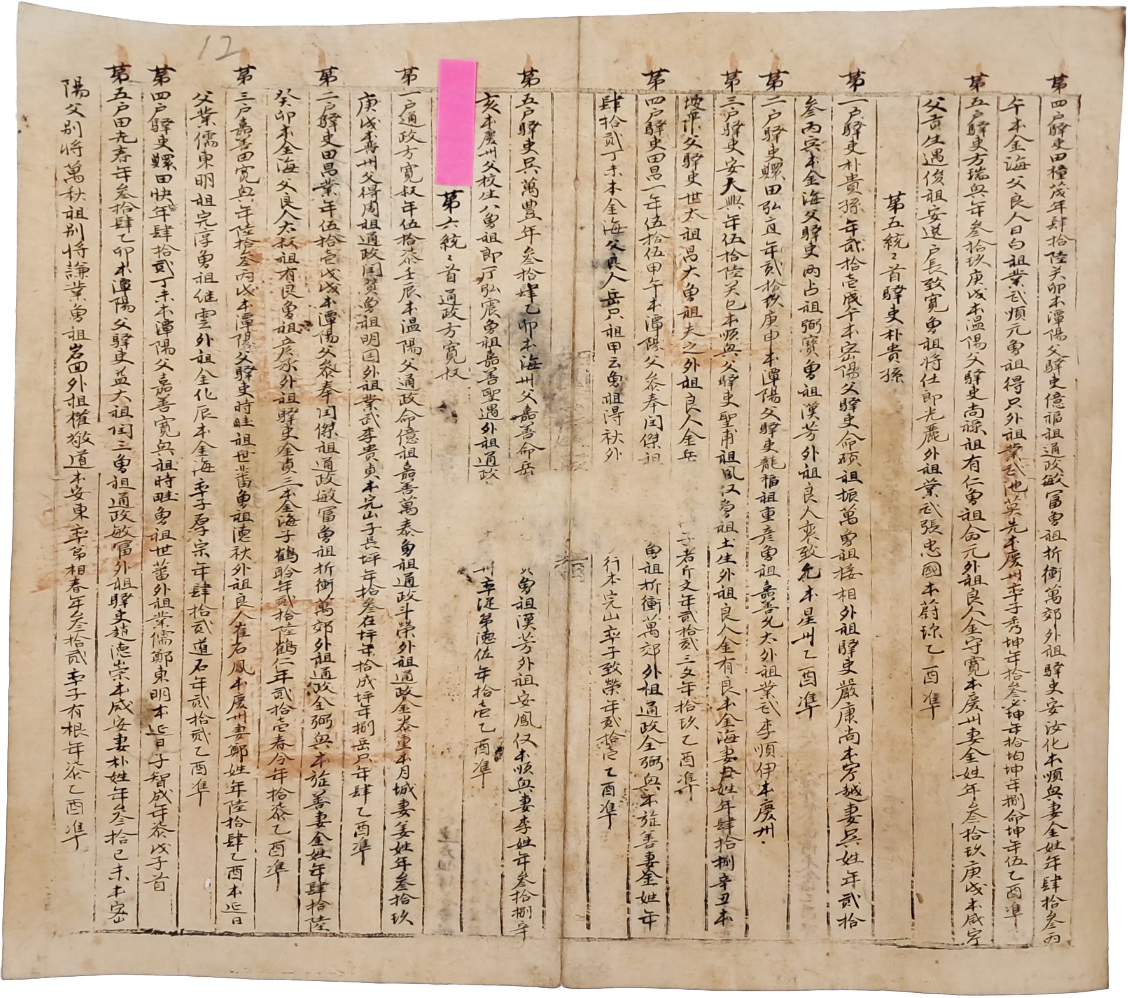 12
第四戶驛吏田種茂年肆拾陸癸卯本潭陽父驛吏億福祖通政敏富曾祖折衝萬郊外祖驛吏安汝化本順興妻金姓年肆拾叁丙
午本金海父良人日白祖業武順元曾祖得只外祖業武池英先本慶州率子秀坤年拾叁 坤年拾均坤年捌命坤年伍乙酉準
第五戶驛吏方瑞興年叁拾玖庚戌本溫陽父驛吏尚祿祖有仁曾祖命元外祖良人金守寬本慶州妻金姓年叁拾玖庚戌本咸寧
父貢生遇俊祖安逸戶長致寬曾祖將仕郎光麗外祖業武張忠國本蔚珍乙酉準
第五統統首驛吏朴貴孫
第一戶驛吏朴貴孫年貳拾壹戊午本密陽父驛吏命碩祖振萬曾祖接相外祖驛吏嚴康尚本寧越妻吳姓年貳拾
叁丙寅本金海父驛吏丙占祖弼寶曾祖漢芳外祖良人裵致允本星州乙酉準
第二戶驛吏鰥田弘直年貳拾玖庚申本潭陽父驛吏龍福祖重彥曾祖嘉善允大外祖業武李順伊本慶州
第三戶驛吏安大興年伍拾陸癸巳本順興父驛吏聖甫祖風汉曾祖土生外祖良人金有良本金海妻 姓年肆拾捌辛丑本
坡平父驛吏世太祖昌大曾祖夫之外祖良人金岳 子者斤文年貳拾貳三文年拾玖乙酉準
第四戶驛吏田昌一年伍拾伍甲午本潭陽父泰奉閏傑祖 曾祖折衝萬郊外祖通政全弼興本旌善妻金姓年
肆拾貳丁未本金海父良人岳只祖甲云曾祖得秋外 行本完山率子致榮年貳拾 乙酉準
第五戶驛吏吳萬豊年叁拾肆乙卯本海州父嘉善命岳 曾祖漢芳外祖安鳳仅本順興妻李姓年叁拾捌辛
亥本慶州父校生 曾祖郎厅弘震曾祖嘉善聖遇外祖通政 州率 弟德佐年拾壹乙酉準
第六統統首通政方寬叔
第一戶通政方寬叔年伍拾柒壬辰本溫陽父通政命億祖嘉善萬泰曾祖通政斗榮外祖通政金 重本月城妻姜姓年叁拾玖
庚戌本晋州父得周祖通政閏贊曾祖明國外祖業武李貴貞本完山子長坪年拾叁在坪年拾戌坪年捌岳只年肆乙酉準
第二戶驛吏田昌業年伍拾壹戊戌本潭陽父泰奉閏傑祖通政敏富曾祖折衝萬郊外祖通政全弼興本旌善妻金姓年肆拾陸
癸卯本金海父良人太叔祖有良曾祖彥承外祖驛吏金貞三本金海子鶴聆年貳拾陸鶴仁年貳拾壹春今年拾柒乙酉準
第三戶嘉善田寬興年陸拾叁丙戌本潭陽父驛吏時旺祖世蕃曾祖德秋外祖良人崔石鳳本慶州妻鄭姓年陸拾肆乙酉本延日
父業儒東明祖完淳曾祖繼雲外祖全化辰本金海率子厚宗年肆拾貳道石年貳拾貳乙酉準
第四戶驛吏鰥田快年肆拾貳丁未本潭陽父嘉善寬興祖時旺曾祖世蕃外祖業儒鄭東明本延日子智成年柒戊子首
第五戶田先春年叁拾肆乙卯本潭陽父驛吏益大祖閏三曾祖通政敏富外祖驛吏趙德崇本咸安妻朴姓年叁拾己未本密
陽父別將萬秋祖別將謙業曾祖岩回外祖權敬道本安東率弟相春年叁拾貳率子有根年柒乙酉準